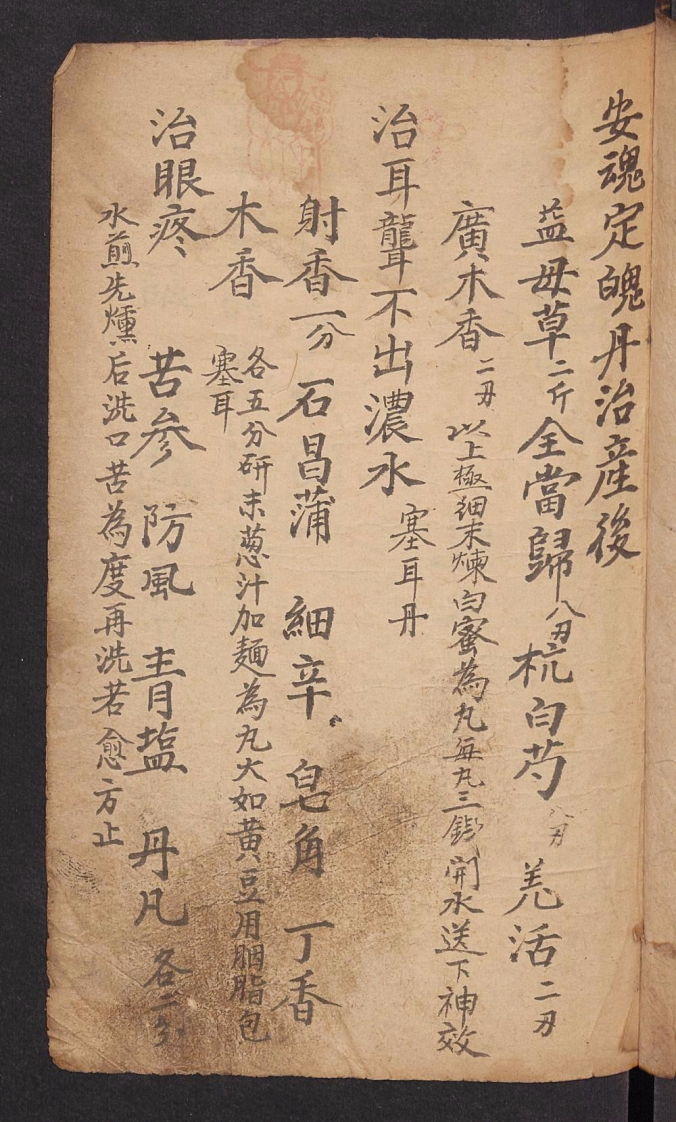 安魂定魄丹治產後
益母草二斤全當歸八刃杭白芍八刃羌活二刃
廣木香二刃以上極細末煉白蜜為丸每丸三錢開水送下神效
治耳聾不出濃水塞耳丹
射香一分石昌蒲細辛皂角丁香
木香各五分研末葱汁加麵為丸大如黃豆用胭脂包
塞耳
治眼疼苦參防風青塩丹凡各二
水煎先燻后洗口苦為度再洗若愈方止